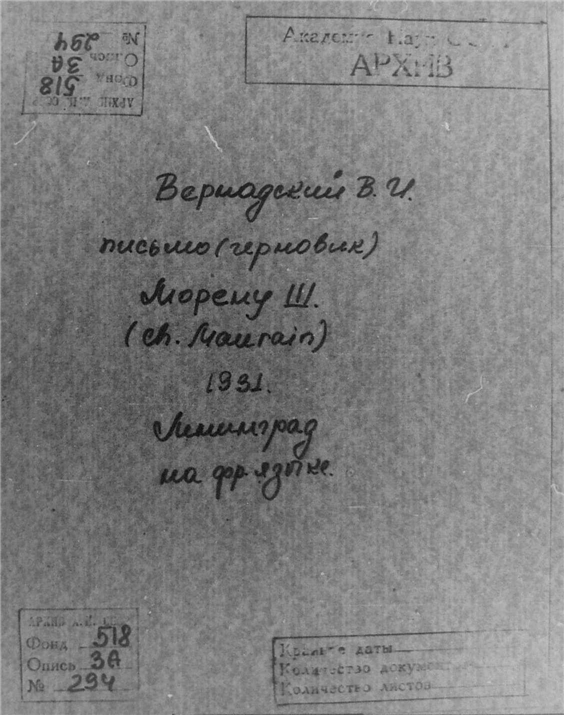 № 294
Опись 3А
Фонд 518
АРХИВ А.Н. СССР
Академия Наук СССР
АРХИВ
Вернадский В. И.
письмо (черновик)
Морену Ш.
(Ch. Maurain)
1931.
Ленинград
на фр. языке.
АРХИВ А.Н. СССР
Фонд 518
Опись 3А
№ 294
Крайние даты
Количество докумен
Количество листов